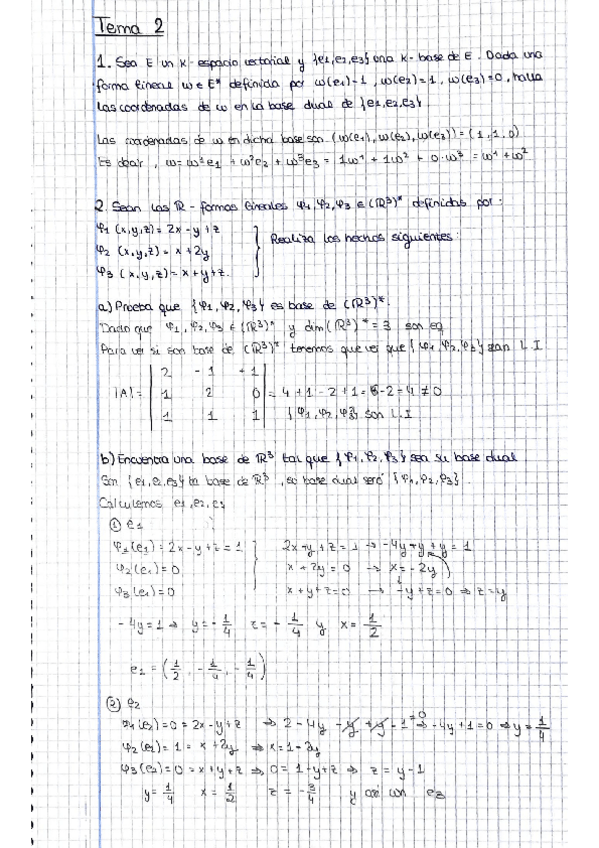 Tema 2
1. Sea E un K-espacio vectorial y {e1,e2,e3} una K-base de E. Dada una
forma lineal w ∈ E* definida por w(e1)=1, w(e2)=1, w(e3)=0, halla
las coordenadas de w en la base dual de {e1,e2,e3}
Las coordenadas de w en dicha base son (w(e1), w(e2), w(e3)) = (1,1,0)
Es decir, w = w¹e1 + w²e2 + w³e3 = 1w¹ + 1w² + 0·w³ = w¹ + w²
2. Sean las R-formas lineales φ1, φ2, φ3 ∈ (R³)* definidas por:
φ1 (x,y,z) = 2x - y + z
φ2 (x,y,z) = x + 2y
Realiza los hechos siguientes:
φ3 (x,y,z) = x + y + z.
a) Prueba que {φ1, φ2, φ3} es base de (R³)*.
Dado que φ1, φ2, φ3 ∈ (R³)* y dim(R³)* = 3 son eq
Para ver si son base de (R³)* tenemos que ver que {φ1, φ2, φ3} sean L.I
2 -1 +1
|A| = 1 2 0 = 4 + 1 - 2 + 1 = 6 - 2 = 4 ≠ 0
1 1 1 {φ1, φ2, φ3} son L.I
b) Encuentra una base de R³ tal que {φ1, φ2, φ3} sea su base dual
Son {e1,e2,e3} la base de R³, su base dual será {φ1, φ2, φ3}.
Calculemos e1, e2, e3
① e1
φ1(e1) = 2x - y + z = 1 2x - y + z = 1 → -4y - y + y = 1
φ2(e1) = 0 x + 2y = 0 → x = -2y
φ3(e1) = 0 x + y + z = 0 → -y + z = 0 ⇒ z = y
-4y = 1 ⇒ y = -1/4 z = -1/4 y x = 1/2
e1 = (1/2, -1/4, -1/4)
② e2
φ1(e2) = 0 = 2x - y + z ⇒ 2 - 4y - y + y - 1 = 0 ⇒ -4y + 1 = 0 ⇒ y = 1/4
φ2(e2) = 1 = x + 2y ⇒ x = 1 - 2y
φ3(e2) = 0 = x + y + z ⇒ 0 = 1 - y + z ⇒ z = y - 1
y = 1/4 x = 1/2 z = -3/4 y así con e3